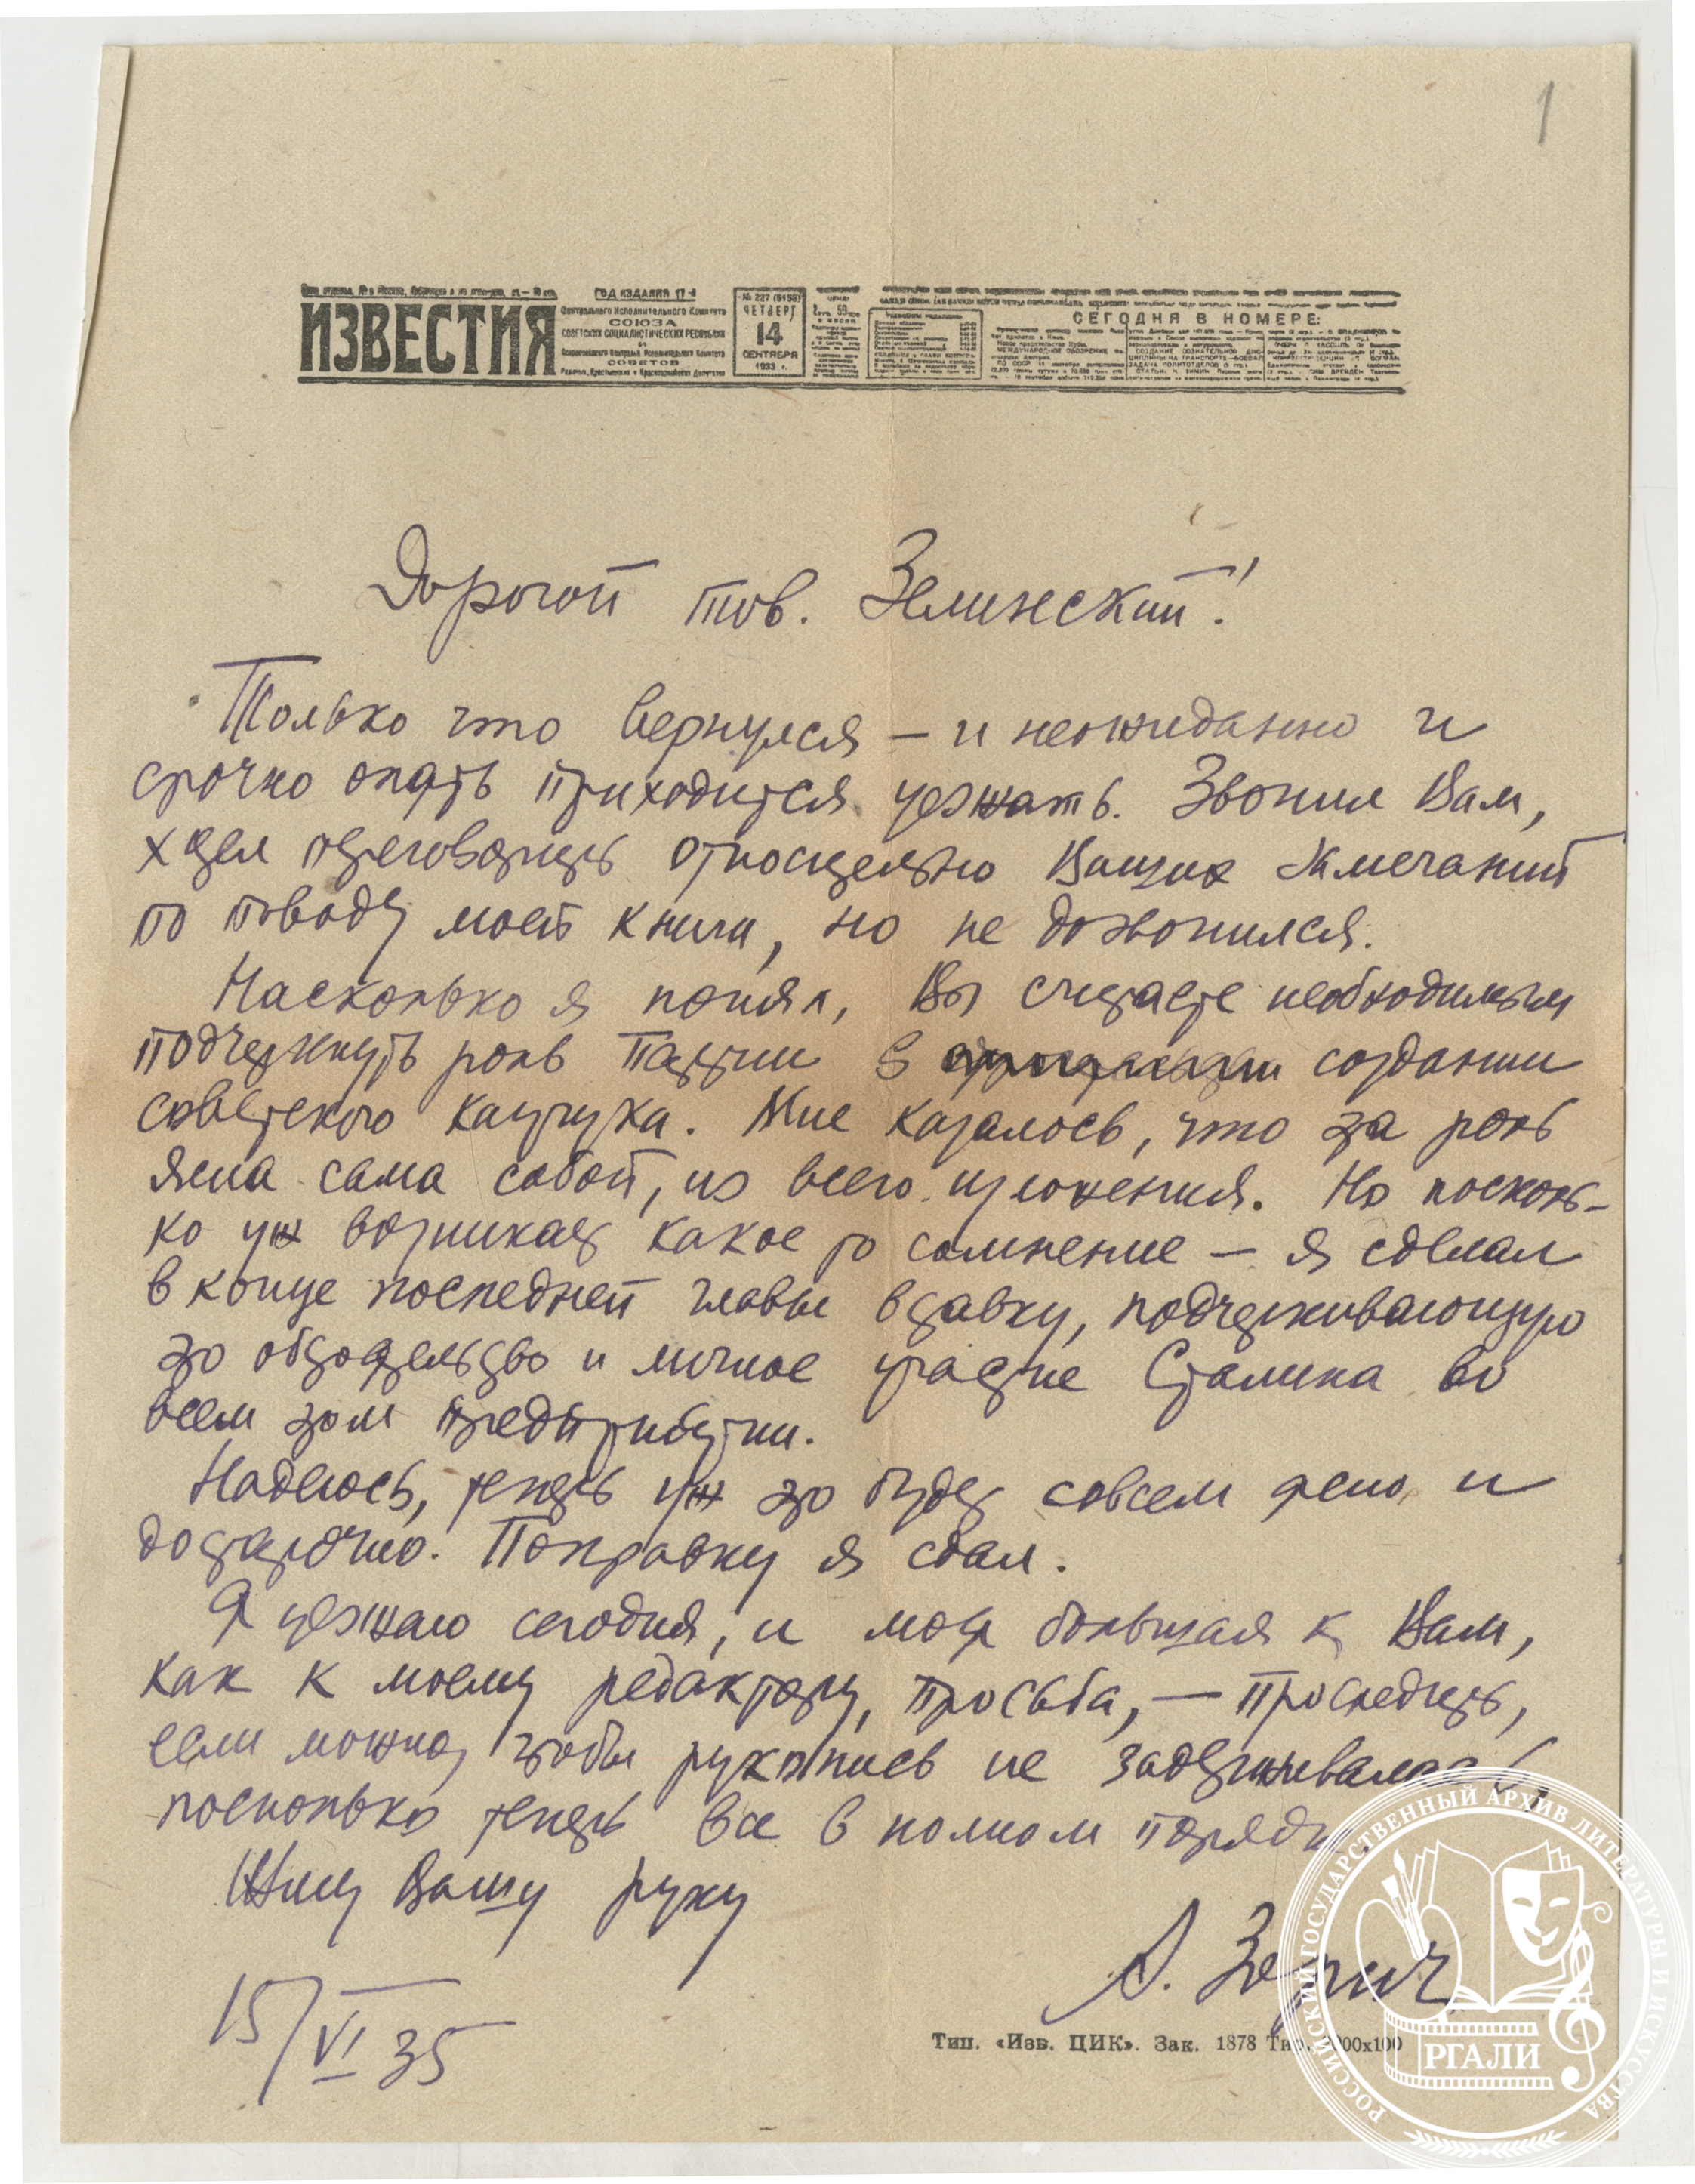 1
ИЗВЕСТИЯ
ГОД ИЗДАНИЯ 17-й
Центрального Исполнительного Комитета
СОЮЗА
СОВЕТСКИХ СОЦИАЛИСТИЧЕСКИХ РЕСПУБЛИК
и
Всероссийского Центральн. Исполнительного Комитета
СОВЕТОВ
Рабочих, Крестьянских и Красноармейских Депутатов
№ 227 (5158)
ЧЕТВЕРГ
14
СЕНТЯБРЯ
1933 г.
СЕГОДНЯ В НОМЕРЕ:
Дорогой тов. Зелинский!
Только что вернулся – и неожиданно и
срочно опять приходится уезжать. Звонил Вам,
хотел переговорить относительно Ваших замечаний
по поводу моей книги, но не дозвонился.
Насколько я понял, Вы считаете необходимым
подчеркнуть роль партии в создании
советского каучука. Мне казалось, что эта роль
ясна сама собой, из всего изложения. Но посколь-
ко уж возникает какое то сомнение – я сделал
в конце последней главы вставку, подчеркивающую
это обстоятельство и личное участие Сталина во
всем этом предприятии.
Надеюсь, теперь уж это будет совсем ясно и
достаточно. Поправку я сдал.
Я уезжаю сегодня, и моя большая к Вам,
как к моему редактору, просьба, – проследить,
если можно, чтобы рукопись не задерживалась,
поскольку теперь все в полном порядке.
Жму Вашу руку
А. Зорич
15/VI 35
Тип. «Изв. ЦИК». Зак. 1878 Тир. 00х100
РОССИЙСКИЙ ГОСУДАРСТВЕННЫЙ АРХИВ ЛИТЕРАТУРЫ И ИСКУССТВА
РГАЛИ